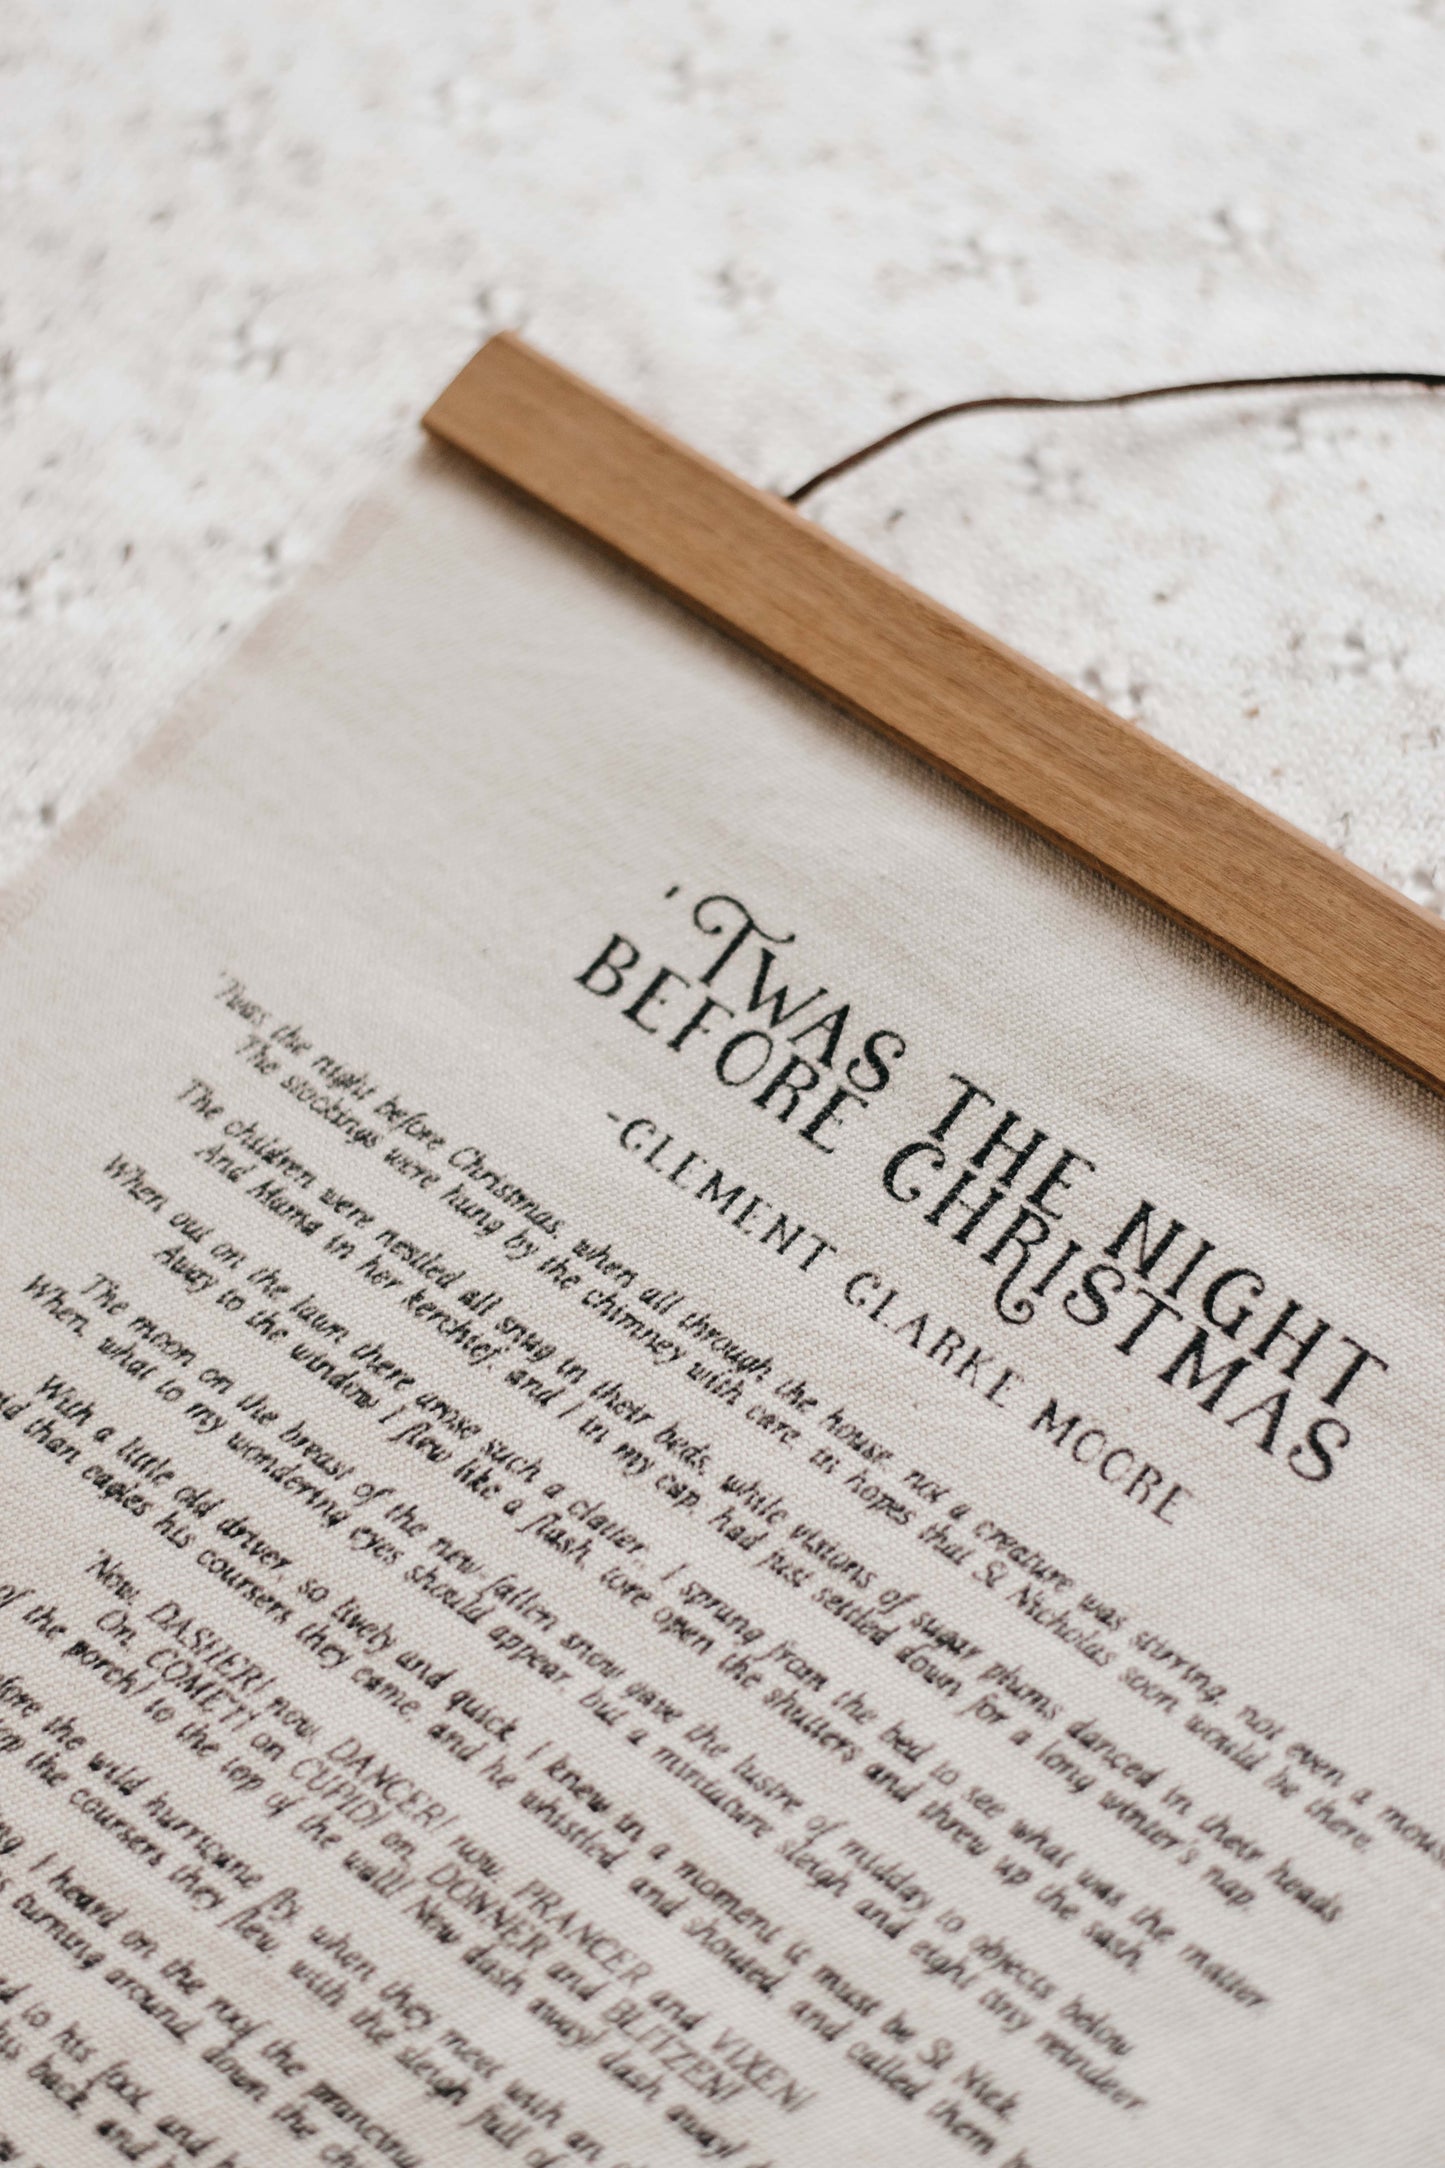 'TWAS THE NIGHT
BEFORE CHRISTMAS
-CLEMENT CLARKE MOORE
'Twas the night before Christmas, when all through the house, not a creature was stirring, not even a mous
The stockings were hung by the chimney with care, in hopes that St Nicholas soon would be there.
The children were nestled all snug in their beds, while visions of sugar plums danced in their heads
And Mama in her kerchief, and I in my cap, had just settled down for a long winter's nap.
When out on the lawn there arose such a clatter, I sprung from the bed to see what was the matter.
Away to the window I flew like a flash, tore open the shutters and threw up the sash.
The moon on the breast of the new-fallen snow gave the lustre of midday to objects below
When, what to my wondering eyes should appear, but a miniature sleigh and eight tiny reindeer.
With a little old driver, so lively and quick, I knew in a moment it must be St Nick.
than eagles his coursers they came, and he whistled, and shouted, and called them
'Now, DASHER! now, DANCER! now, PRANCER and VIXEN!
On, COMET! on CUPID! on, DONNER and BLITZEN!
of the porch! to the top of the wall! Now dash away! dash away!
the wild hurricane fly, when they meet with an
the coursers they flew, with the sleigh full of
I heard on the roof the prancing
turning around, down the
to his foot, and
his back, and